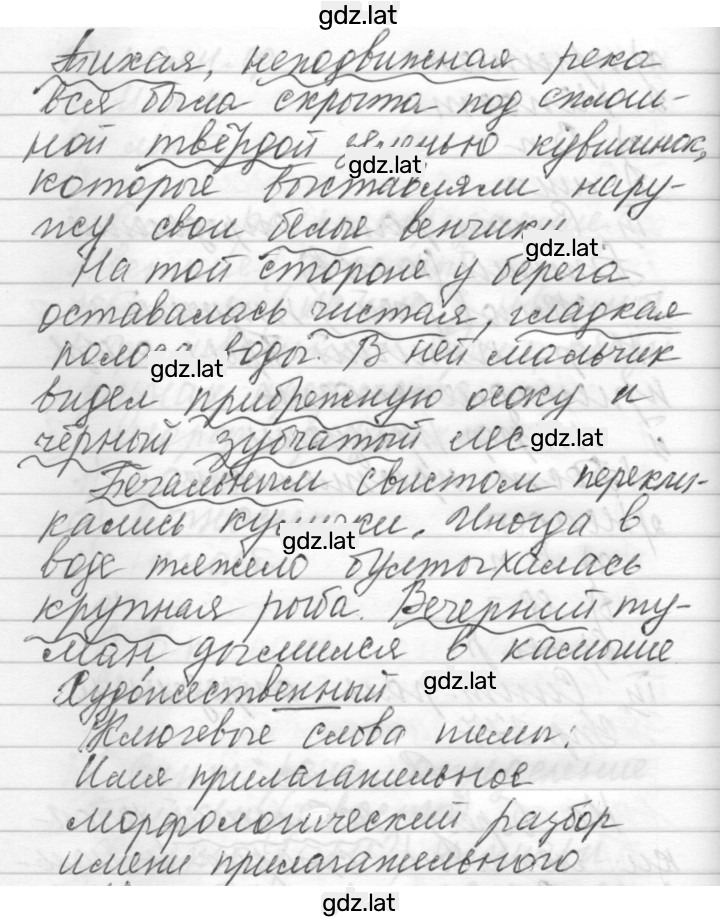 gdz.lat
Тихая, неподвижная река
вся была скрыта под сплош-
ной твёрдой зеленью кувшинок,
gdz.lat
которые выставляли нару-
жу свои белые венчики
gdz.lat
На той стороне у берега
оставалась чистая, гладкая
полоса воды. В ней мальчик
gdz.lat
видел прибрежную осоку и
чёрный зубчатый лес
gdz.lat
Печальным свистом перекли-
кались кулички. Иногда в
gdz.lat
воде тяжело бултыхалась
крупная рыба. Вечерний ту-
ман дымился в камыше.
gdz.lat
Художественный
Ключевые слова темы:
Имя прилагательное
морфологический разбор
имени прилагательного
gdz.lat